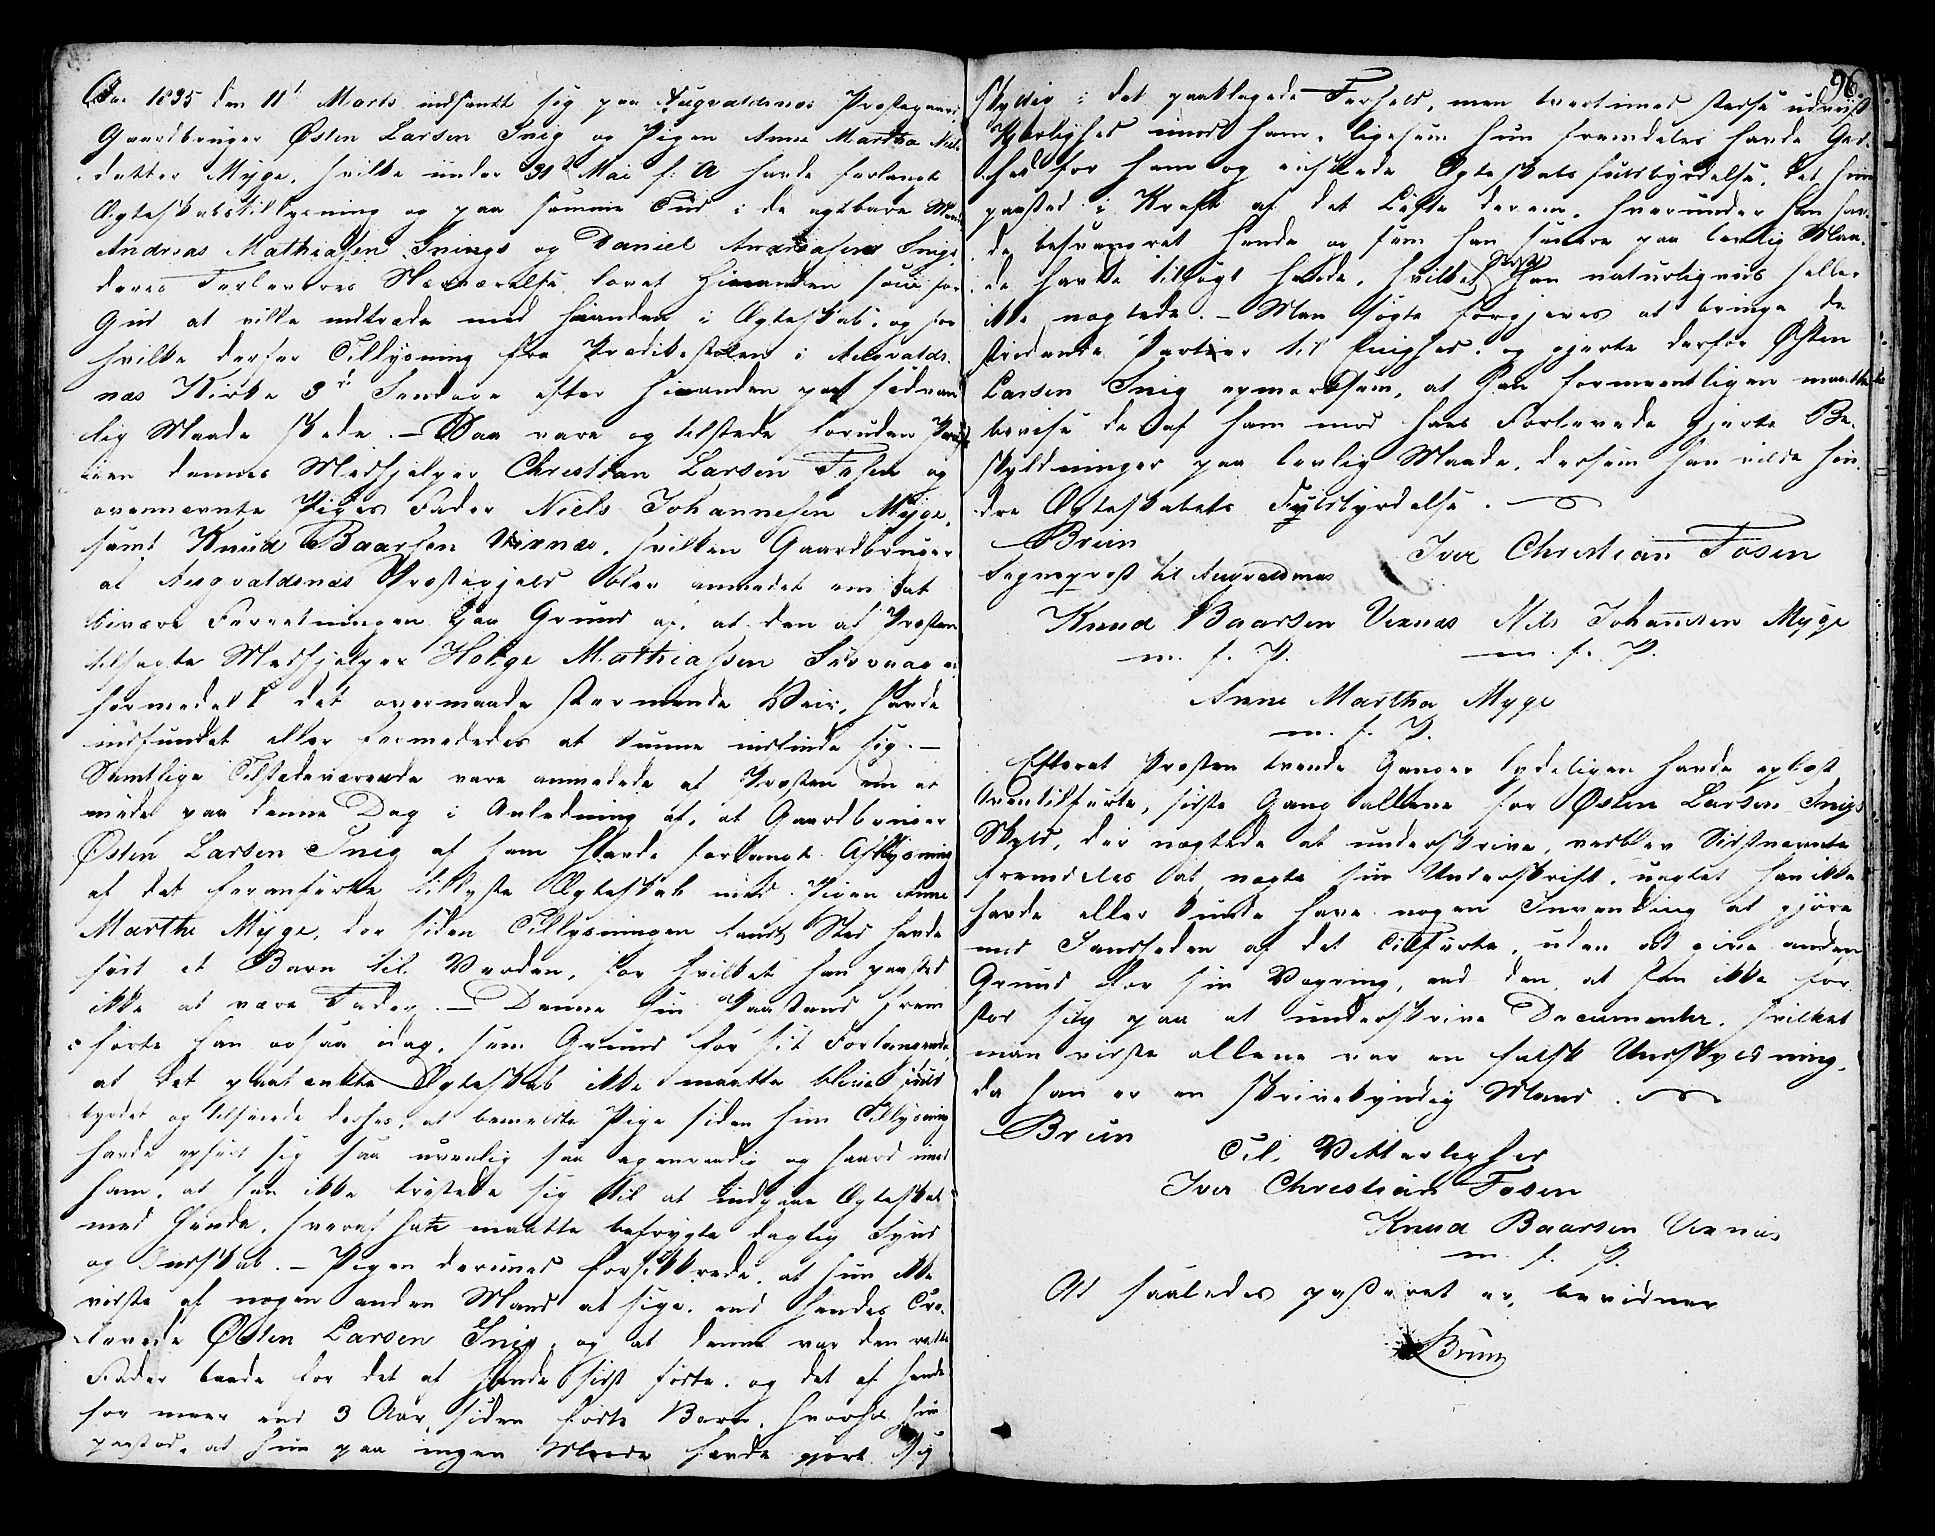 Aar 1835 den 11t Marts indfandt sig paa Augvaldsnæs Præstegaard
Gaardbruger Østen Larsen Snig og Pigen Anne Martha Niels
datter Myge, hvilke under 31t Mai f: A havde forlangt
Ægteskabstillysning og paa samme Tid i de agtbare Mænd
Andreas Mathiassen Snigs og Daniel Andreasens Snigs
deres Forloveres Nærværelse lovet hinanden som for
Gud at ville indtræde med hinanden i Ægteskab, og for
hvilke derfor Tillysning fra Prædikestolen i Augvalds-
næs Kirke 3de Søndage efter hinanden paa sædvan-
lig Maade skede. — Paa vare og tilstede foruden Præ-
sten dennes Medhjelper Christian Larsen Fosen og
ovennævnte Piges Fader Niels Johannesen Myge,
samt Knud Baarsen Vixnæs, hvilken Gaardbruger
af Augvaldsnæs Præstegjeld blev anmodet om at
bivære Forretningen paa Grund af, at den af Præsten
tilsagte Medhjelper Helge Mathiassen
formedelst det overmaade stormende Veir, havde
indfundet eller formodedes at kunne indfinde sig. —
Samtlige Tilstedeværende vare anmodede af Præsten om at
møde paa denne Dag i Anledning af, at Gaardbruger
Østen Larsen Snig af ham havde forlangt Aflysning
af det foranførte tillyste Ægteskab med Pigen Anne
Marthe Myge, der siden Tillysningen fandt Sted havde
født et Barn til Verden, for hvilket han paastod
ikke at være Fader. — Denne sin Paastand frem
førte han ogsaa idag, som Grund for sit Forlangende,
at det paatænkte Ægteskab ikke maatte blive fuld
byrdet og tilføiede derhos, at bemeldte Pige siden hin Tillysning
havde opført sig saa uvenlig saa egenraadig og haard imod
ham, at han ikke trøstede sig til at indgaae Ægteskab
med hende, hvoraf han maatte befrygte daglig Synd
og Ondskab. — Pigen derimod forsikkrede, at hun ikke
vidste af nogen anden Mand at sige, end hendes Tro-
lovede Østen Larsen Snig, og at denne var den rette
Fader baade for det af hende sidst fødte, og det af hende
for meer end 3 Aar siden fødte Barn, hvorhos hun
paastod, at hun paa ingen Maade havde gjort sig
96.
skyldig i det paaklagede Forhold, men tvertimod stedse udviist
Kjærlighed imod ham, ligesom hun fremdeles havde God-
hed for ham og enskede Ægteskabs fuldbyrdelse, det hun
paastod i Kraft af det Løfte derom, hvorunder han hav-
de besvangret hende og som han senere paa lovlig Maa-
de havde tilsagt hende, hvilket sidste han naturligviis heller
ikke nægtede. — Man søgte forgjeves at bringe de
stridende Partier til Enighed, og gjorte derfor Østen
Larsen Snig opmærksom, at han formeentligen maatte
bevise de af ham mod hans Forlovede gjorte Be-
skyldninger paa lovlig Maade, dersom han vilde hin-
dre Ægteskabets Fyldbyrdelse.
Brun
Iver Christian Fosen
Sognepræst til Augvaldsnæs
Knud Baarsen Vexnæs Nils Johannsen Myge
m. f. P. m. f. P.
Anne Martha Myge
m. f. P.
Efterat Præsten tvende Gange lydeligen havde oplæst
Oventilførte, sidste Gang allene for Østen Larsen Snigs
Skyld, der nægtede at underskrive, vedblev Sidstnævnte
fremdeles at nægte sin Underskrift, uagtet han ikke
havde eller kunde have nogen Indvending at gjøre
mod Sandheden af det Tilførte, uden at give anden
Grund for sin Vægring, end den, at han ikke for-
stod sig paa at underskrive Documenter, hvilket
man vidste allene var en falsk Undskyldning,
da han er en skrivekyndig Mand.
Brun
Til Vitterlighed
Iver Christian Fosen
Knud Baarsen Vexnæs
m. f. P.
At saaledes passeret er, bevidner
Brun